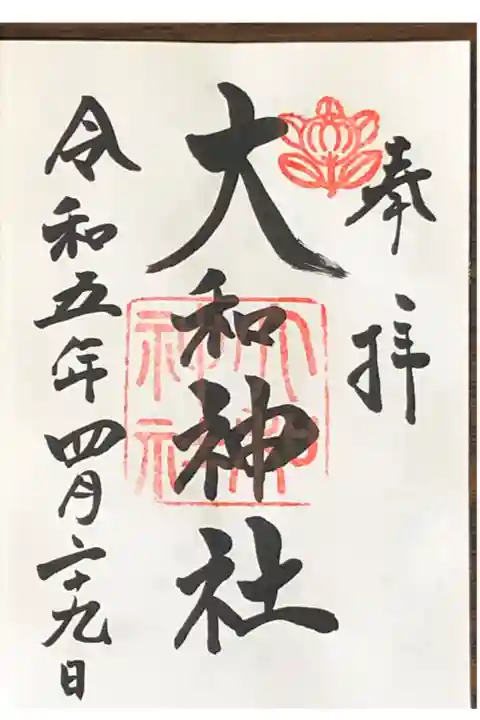 奉拝
大和神社
大和神社
令和五年四月二十九日